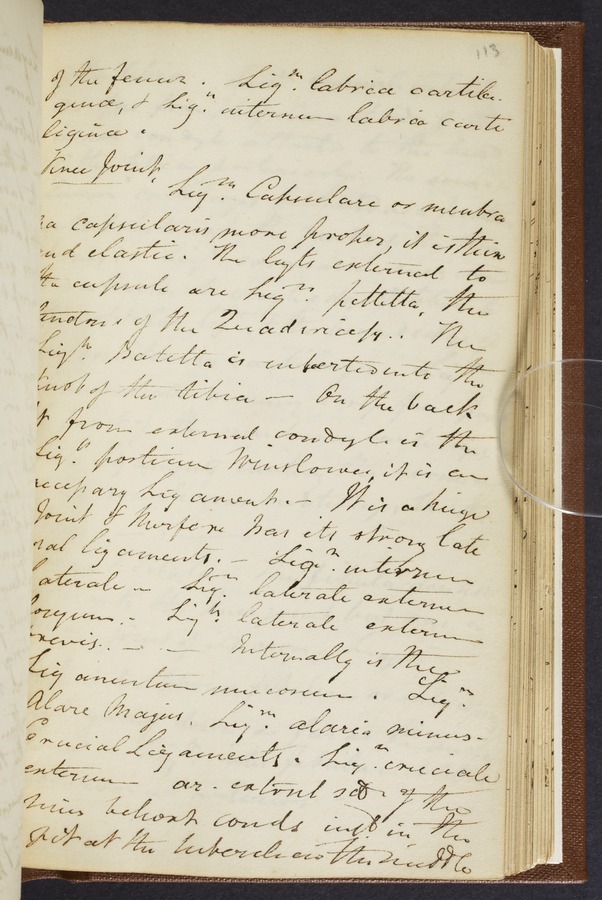 113
of the femur. Ligm. labrica cartila-
ginæ, & Lig.n internum labria carti
ligina.
Knee Joint,
Ligm. Capsulare or membra
na capsularis more proper, it is thin
and elastic. The ligts external to
the capsule are Ligm. pettetta, the
tendons of the Quadriceps.. The
Ligm Patetta is inserted into the
knob of the tibia — On the back
from external condyle is the
Lig.n posticum Winslowei, it is an
accessary Ligament. — It is a hinge
Joint & therfore has its strong late
ral ligaments. — Ligm. internum
laterale — Lig. laterale externum
longum. — Ligm. laterale externum
brevis. — — Internally is the
Ligamentum mucosum. Ligm.
Alare Majus. Ligm. alaria minus-
Crucial Ligaments. Ligm. cruciale
externum ar. of the
in the
pit at the tubercles in the middle